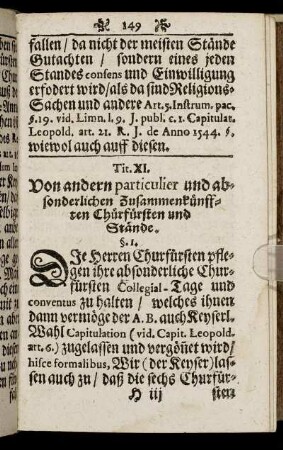 149
fallen / da nicht der meisten Stände
Gutachten / sondern eines jeden
Standes consens und Einwilligung
erfodert wird / als da sind Religions-
Sachen und andere Art. 5. Instrum. pac.
§. 19. vid. Limn. l. 9. J. publ. c. 1. Capitulat.
Leopold. art. 21. R. J. de Anno 1544. §.
wiewol auch auff diesen.
Tit. XI.
Von andern particulier und ab-
sonderlichen Zusammenkünff-
ten Chürfürsten und
Stände.
§. 1.
DIe Herren Churfürsten pfle-
gen ihre absonderliche Chur-
fürsten Collegial-Tage und
conventus zu halten / welches ihnen
dann vermöge der A. B. auch Keyserl.
Wahl Capitulation (vid. Capit. Leopold.
art. 6.) zugelassen und vergönet wird /
hisce formalibus, Wir (der Keyser) las-
sen auch zu / daß die sechs Churfür-
H iij sten